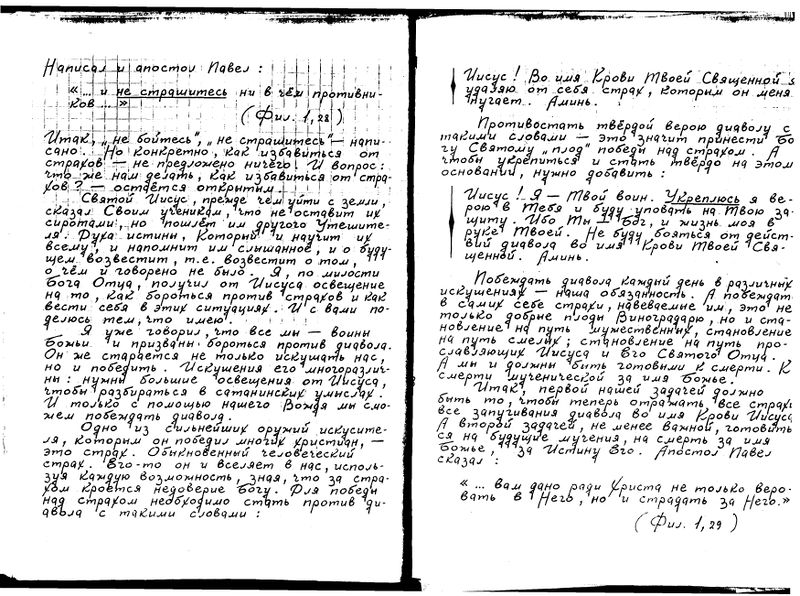 Написал и апостол Павел :
« ... и не страшитесь ни в чём противни-
ков ... »
( Фил. 1, 28 )
Итак, „не бойтесь", „не страшитесь" — напи-
сано. Но конкретно, как избавиться от
страхов — не предложено ничего! И вопрос:
что же нам делать, как избавиться от стра-
хов? — остаётся открытым.
Святой Иисус, прежде чем уйти с земли,
сказал Своим ученикам, что не оставит их
сиротами, но пошлёт им другого Утешите-
ля. Духа истины, Который и научит их
всему, и напомнит им слышанное, и о буду-
щем возвестит, т.е. возвестит о том,
о чём и говорено не было. Я, по милости
Бога Отца, получил от Иисуса освещение
на то, как бороться против страхов и как
вести себя в этих ситуациях. И с вами по-
делюсь тем, что имею.
Я уже говорил, что все мы — воины
Божьи и призваны бороться против диавола.
Он же старается не только искушать нас,
но и победить. Искушения его многоразлич-
ны: нужны большие освещения от Иисуса,
чтобы разбираться в сатанинских умыслах.
И только с помощью нашего Вождя мы смо-
жем побеждать диавола.
Одно из сильнейших оружий искусите-
ля, которым он победил многих христиан, —
это страх. Обыкновенный человеческий
страх. Его-то он и вселяет в нас, исполь-
зуя каждую возможность, зная, что за стра-
хом кроется недоверие Богу. Для победы
над страхом необходимо стать против ди-
авола с такими словами :
Иисус! Во имя Крови Твоей Священной
удаляю от себя страх, которым он меня
пугает. Аминь.
Противостать твёрдой верою диаволу с
такими словами — это значит принести Бо-
гу Святому „плод" победы над страхом. А
чтобы укрепиться и стать твёрдо на этом
основании, нужно добавить :
Иисус! Я — Твой воин. Укреплюсь я ве-
рою в Тебя и буду уповать на Твою за-
щиту. Ибо Ты — Бог, и жизнь моя в
руке Твоей. Не буду бояться от дейст-
вий диавола во имя Крови Твоей Свя-
щенной. Аминь.
Побеждать диавола каждый день в различных
искушениях — наша обязанность. А побеждат
в самих себе страхи, навеваемые им, это не
только добрые плоды Виноградарю, но и ста-
новление на путь мужественных, становление
на путь смелых; становление на путь про-
славляющих Иисуса и Его Святого Отца.
А мы и должны быть готовыми к смерти. К
смерти мученической за имя Божье.
Итак, первой нашей задачей должно
быть то, чтобы теперь отражать все страхи
все запугивания диавола во имя Крови Иисуса
А второй задачей, не менее важной, готовить
ся на будущие мучения, на смерть за имя
Божье, за Истину Его. Апостол Павел
сказал :
« ... вам дано ради Христа не только веро-
вать в Него, но и страдать за Него.»
( Фил. 1, 29 )